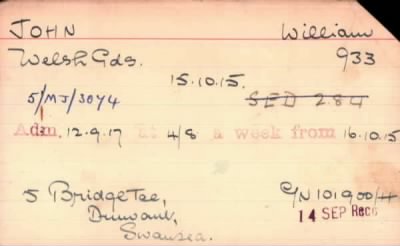 JOHN William
Welsh Gds. 933
15.10.15.
5/MJ/3074 SED 284
Adm. 12.9.17 at 4/8 a week from 16.10.15
5 Bridge Tce, C/N 101900/4
Dunvant, 14 SEP Recd
Swansea.